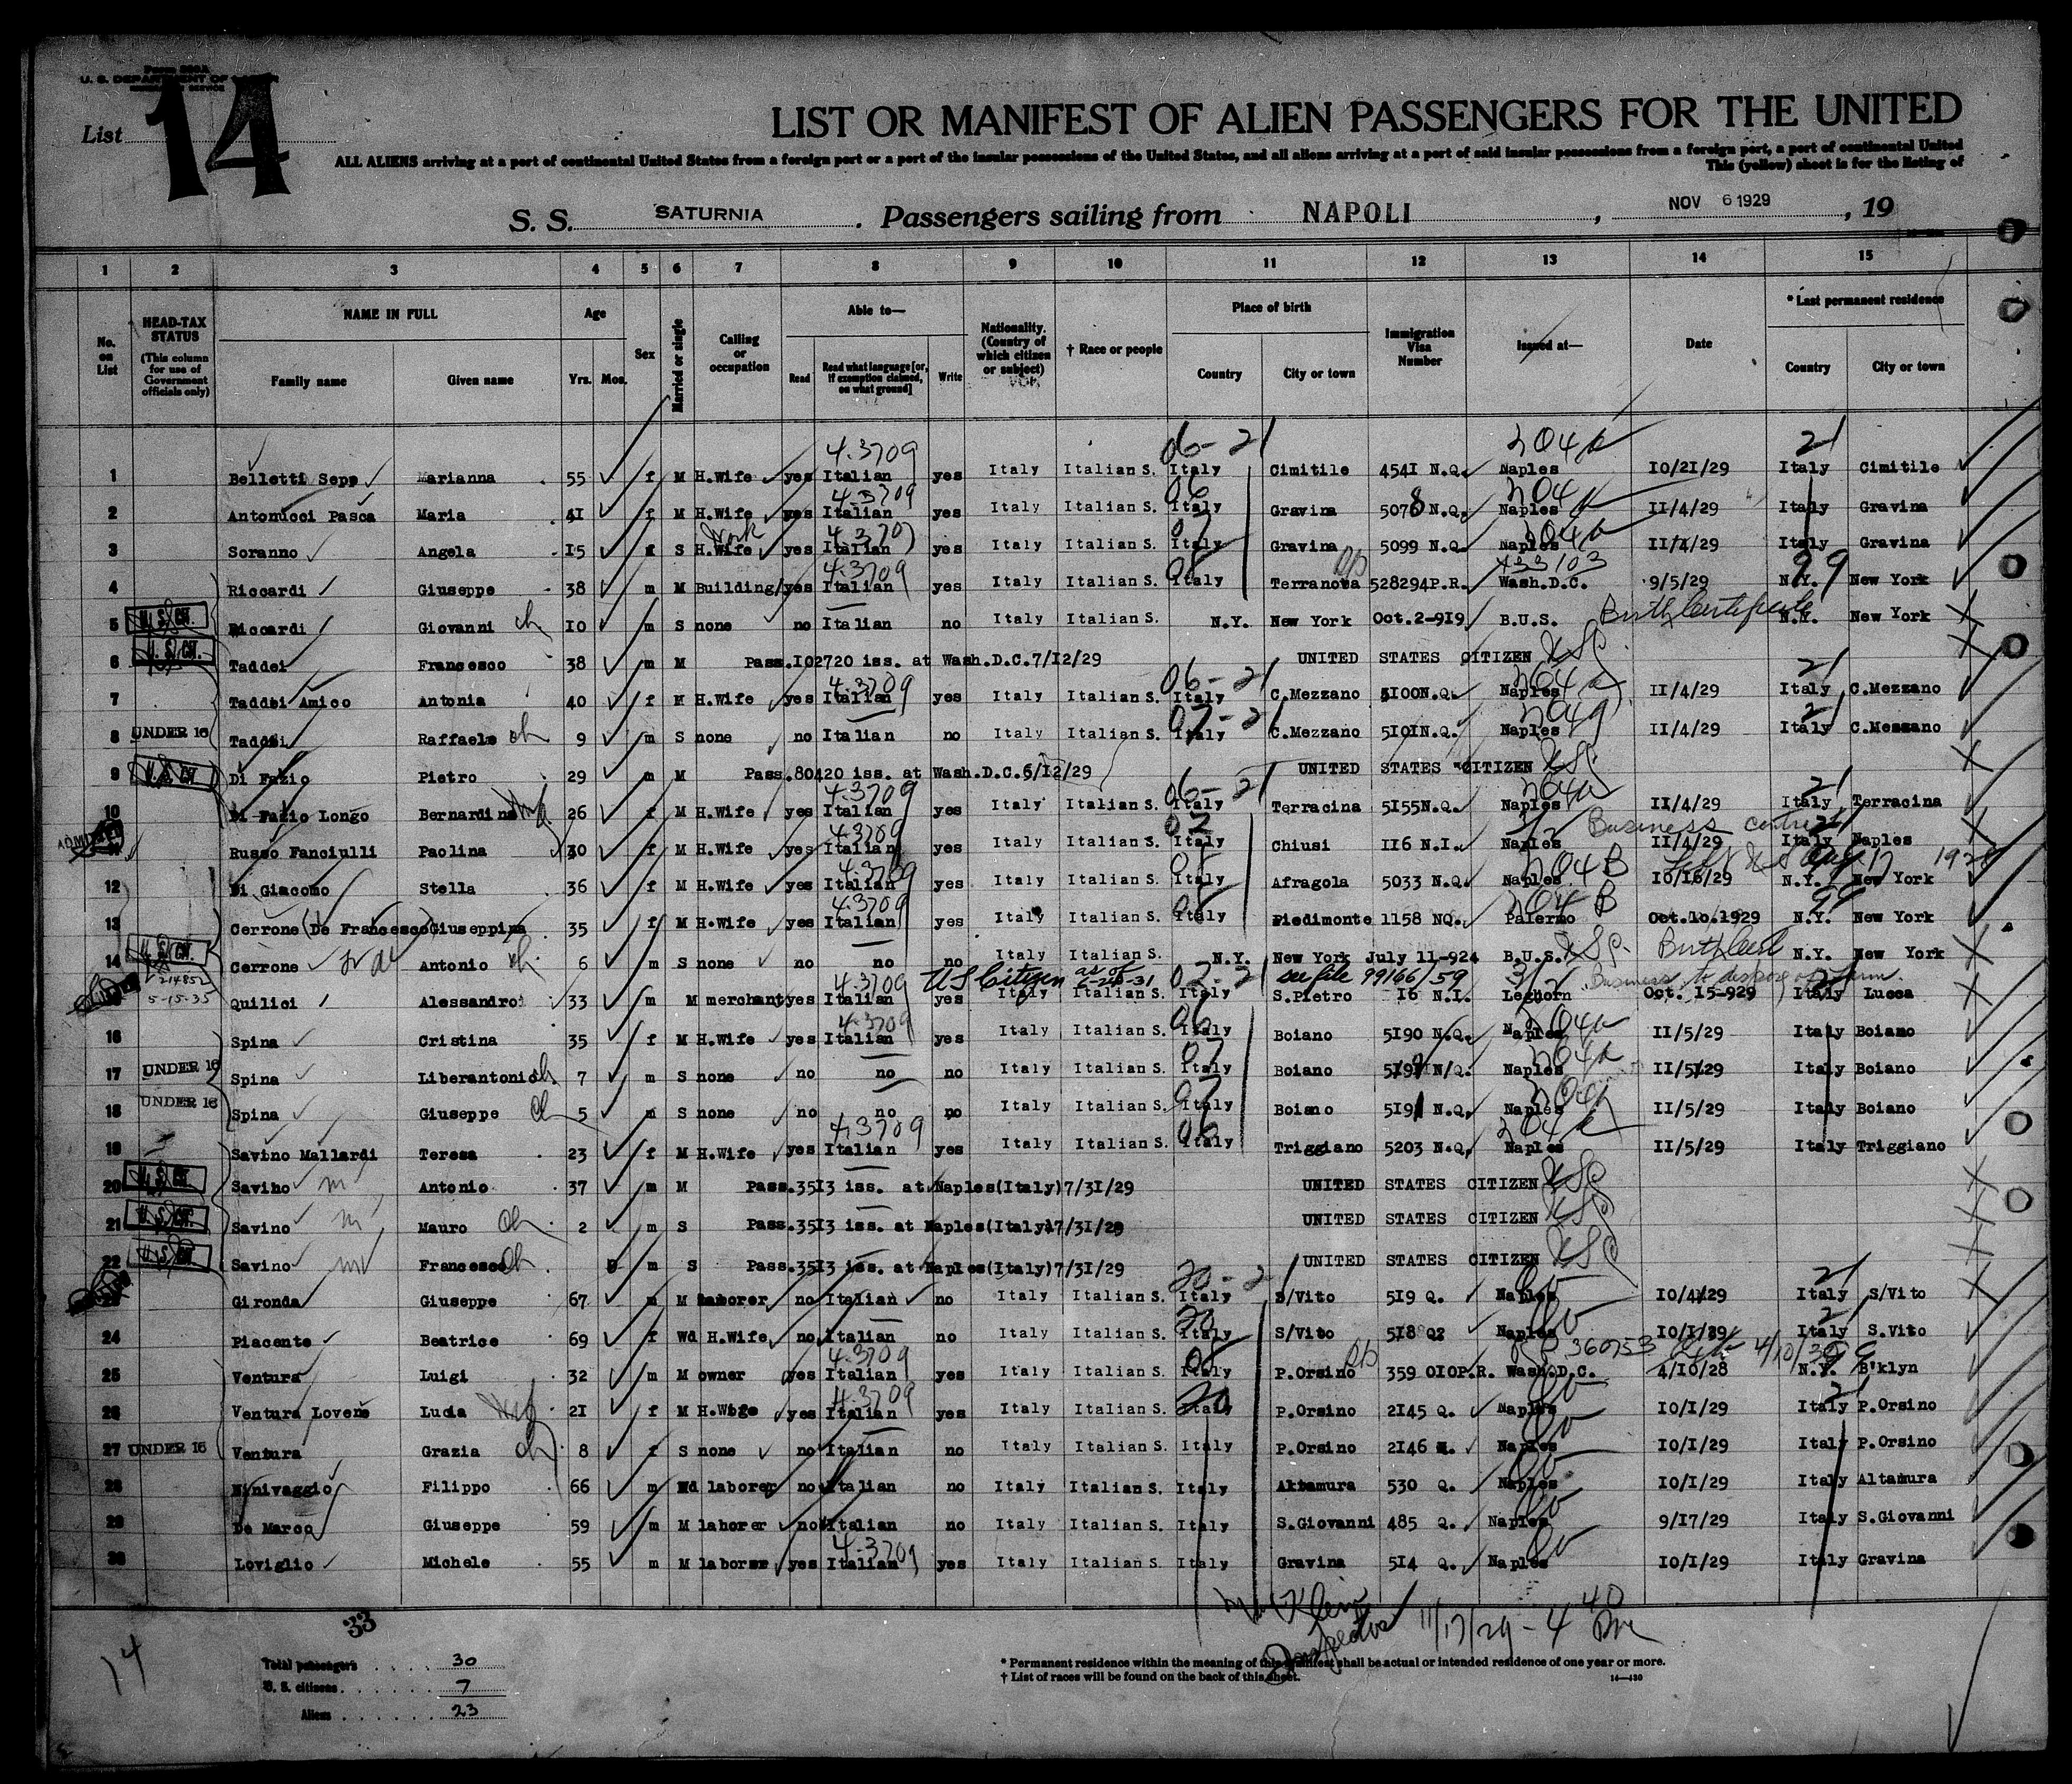 Form 500A
U. S. DEPARTMENT OF LABOR
IMMIGRATION SERVICE
List 14
LIST OR MANIFEST OF ALIEN PASSENGERS FOR THE UNITED
ALL ALIENS arriving at a port of continental United States from a foreign port or a port of the insular possessions of the United States, and all aliens arriving at a port of said insular possessions from a foreign port, a port of continental United
This (yellow) sheet is for the listing of
S. S. SATURNIA . Passengers sailing from NAPOLI , NOV 6 1929 , 19
1 2 3 4 5 6 7 8 9 10 11 12 13 14 15
No. on List
HEAD-TAX STATUS (This column for use of Government officials only)
NAME IN FULL
Family name Given name
Age
Yrs. Mos.
Sex
Married or single
Calling or occupation
Able to—
Read Read what language [or, if exemption claimed, on what ground] Write
Nationality. (Country of which citizen or subject)
† Race or people
Place of birth
Country City or town
Immigration Visa Number
Issued at—
Date
* Last permanent residence
Country City or town
06-21 204a 21
4-3709
1 Belletti Sepe Marianna 55 f M H.Wife yes Italian yes Italy Italian S. Italy Cimitile 4541 N.Q. Naples 10/21/29 Italy Cimitile
4-3709 06 204
2 Antonucci Pasca Maria 41 f M H.Wife yes Italian yes Italy Italian S. Italy Gravina 5078 N.Q. Naples 11/4/29 Italy Gravina
Work 204a
3 Soranno Angela 15 f S H.Wife yes Italian yes Italy Italian S. Italy Gravina 5099 N.Q. Naples 11/4/29 Italy Gravina
4-3709 433103 99
4 Riccardi Giuseppe 38 m M Building yes Italian yes Italy Italian S. Italy Terranova 528294P.R. Wash.D.C. 9/5/29 N.Y. New York
U.S. CIT.
5 Riccardi Giovanni ch 10 m S none no Italian no Italy Italian S. N.Y. New York Oct.2-919 B.U.S. Birth Certificate N.Y. New York
U.S. CIT.
6 Taddei Francesco 38 m M Pass.102720 iss. at Wash.D.C.7/12/29 UNITED STATES CITIZEN USC
4-3709 06-21 204a 21
7 Taddei Amico Antonia 40 f M H.Wife yes Italian yes Italy Italian S. Italy C.Mezzano 5100N.Q. Naples 11/4/29 Italy C.Mezzano
07-21 21
8 UNDER 16 Taddei Raffaele ch 9 m S none no Italian no Italy Italian S. Italy C.Mezzano 5101N.Q. Naples 11/4/29 Italy C.Mezzano
9 U.S. CIT. Di Fazio Pietro 29 m M Pass.80420 iss. at Wash.D.C.6/12/29 UNITED STATES CITIZEN USC
4-3709 06-21 204a 21
10 Di Fazio Longo Bernardina 26 f M H.Wife yes Italian yes Italy Italian S. Italy Terracina 5155N.Q. Naples 11/4/29 Italy Terracina
ADMITTED 4-3709 Business
11 Russo Fanciulli Paolina 30 f M H.Wife yes Italian yes Italy Italian S. Italy Chiusi 116 N.I. Naples 11/4/29 Italy Naples
4-3709 204B Left
12 Di Giacomo Stella 36 f M H.Wife yes Italian yes Italy Italian S. Italy Afragola 5033 N.Q. Naples 10/16/29 N.Y. New York
4-3709 204B 99
13 Cerrone (De Francesco) Giuseppina 35 f M H.Wife yes Italian yes Italy Italian S. Italy Piedimonte 1158 NQ. Palermo Oct.10.1929 N.Y. New York
U.S. CIT.
14 Cerrone Antonio ch 6 m S none no no no Italy Italian S. N.Y. New York July 11-924 B.U.S. USC Birth Cert N.Y. New York
214852 4-3709 US Citizen as of 6-26-31 02-21 see file 99166/59 Business to dispose of farm
5-15-35 Quilici Alessandro 33 m M merchant yes Italian yes Italy Italian S. Italy S.Pietro 16 N.I. Leghorn Oct. 15-929 Italy Lucca
4-3709 06 204a
16 Spina Cristina 35 f M H.Wife yes Italian yes Italy Italian S. Italy Boiano 5190 N.Q. Naples 11/5/29 Italy Boiano
07 204a
17 UNDER 16 Spina Liberantonio ch 7 m S none no no no Italy Italian S. Italy Boiano 5192 N.Q. Naples 11/5/29 Italy Boiano
07
18 UNDER 16 Spina Giuseppe ch 5 m S none no no no Italy Italian S. Italy Boiano 5191 N.Q. Naples 11/5/29 Italy Boiano
4-3709 06 204a
19 Savino Mallardi Teresa 23 f M H.Wife yes Italian yes Italy Italian S. Italy Triggiano 5203 N.Q. Naples 11/5/29 Italy Triggiano
20 U.S. CIT. Savino m Antonio 37 m M Pass.3513 iss. at Naples(Italy)7/31/29 UNITED STATES CITIZEN USC
21 U.S. CIT. Savino m Mauro ch 2 m S Pass.3513 iss. at Naples(Italy)7/31/29 UNITED STATES CITIZEN USC
22 U.S. CIT. Savino m Francesco ch m S Pass.3513 iss. at Naples(Italy)7/31/29 UNITED STATES CITIZEN USC
20-21 21
23 Gironda Giuseppe 67 m M laborer no Italian no Italy Italian S. Italy S/Vito 519 Q. Naples 10/4/29 Italy S/Vito
20
24 Piacente Beatrice 69 f Wd H.Wife no Italian no Italy Italian S. Italy S/Vito 518 Q. Naples 10/1/29 Italy S.Vito
4-3709 360753 4/10/30
25 Ventura Luigi 32 m M owner yes Italian yes Italy Italian S. Italy P.Orsino 359 010P.R. Wash.D.C. 4/10/28 N.Y. B'klyn
4-3709 20 21
26 Ventura Lovene Lucia Wf 21 f M H.Wife yes Italian yes Italy Italian S. Italy P.Orsino 2145 Q. Naples 10/1/29 Italy P.Orsino
27 UNDER 16 Ventura Grazia ch 8 f S none no Italian no Italy Italian S. Italy P.Orsino 2146 Naples 10/1/29 Italy P.Orsino
28 Ninivaggio Filippo 66 m Wd laborer no Italian no Italy Italian S. Italy Altamura 530 Q. Naples 10/1/29 Italy Altamura
29 De Marco Giuseppe 59 m M laborer no Italian no Italy Italian S. Italy S.Giovanni 485 Q. Naples 9/17/29 Italy S.Giovanni
4-3709
30 Loviglio Michele 55 m M laborer yes Italian yes Italy Italian S. Italy Gravina 514 Q. Naples 10/1/29 Italy Gravina
Klein
Inspector 11/17/29 - 4 40 Pm
33
14
Total passengers . . . . 30
U. S. citizens . . . . . . 7
Aliens . . . . . . 23
* Permanent residence within the meaning of this manifest shall be actual or intended residence of one year or more.
† List of races will be found on the back of this sheet.
14—130